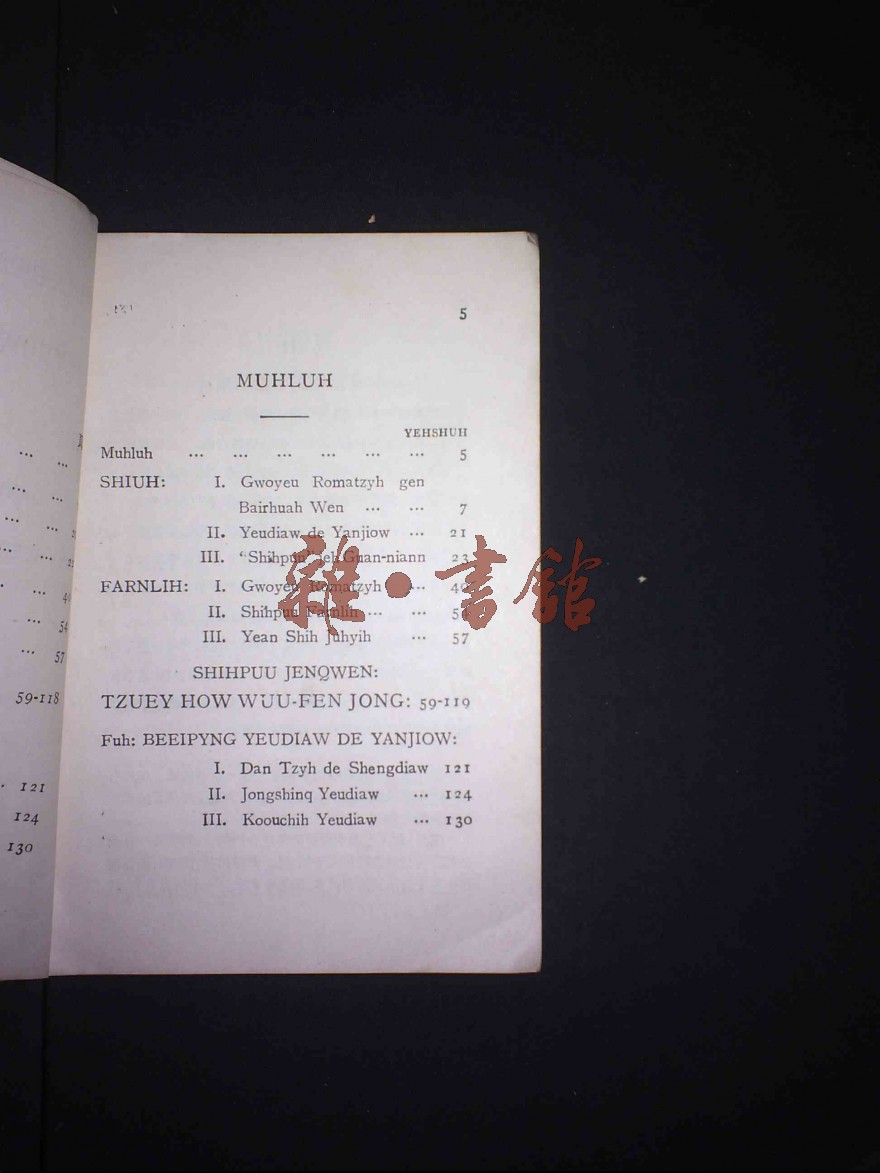 59-118
121
124
130
5
MUHLUH
YEHSHUH
Muhluh ... ... ... ... ... ... 5
SHIUH: I. Gwoyeu Romatzyh gen
Bairhuah Wen ... ... 7
II. Yeudiaw de Yanjiow ... 21
III. "Shihpuu" jeh Guan-niann 23
FARNLIH: I. Gwoyeu Romatzyh ...
II. Shihpuu Farnlih ... ...
III. Yean Shih Juhyih ... 57
SHIHPUU JENQWEN:
TZUEY HOW WUU-FEN JONG: 59-119
Fuh: BEEIPYNG YEUDIAW DE YANJIOW:
I. Dan Tzyh de Shengdiaw 121
II. Jongshinq Yeudiaw ... 124
III. Koouchih Yeudiaw ... 130
雜·書館